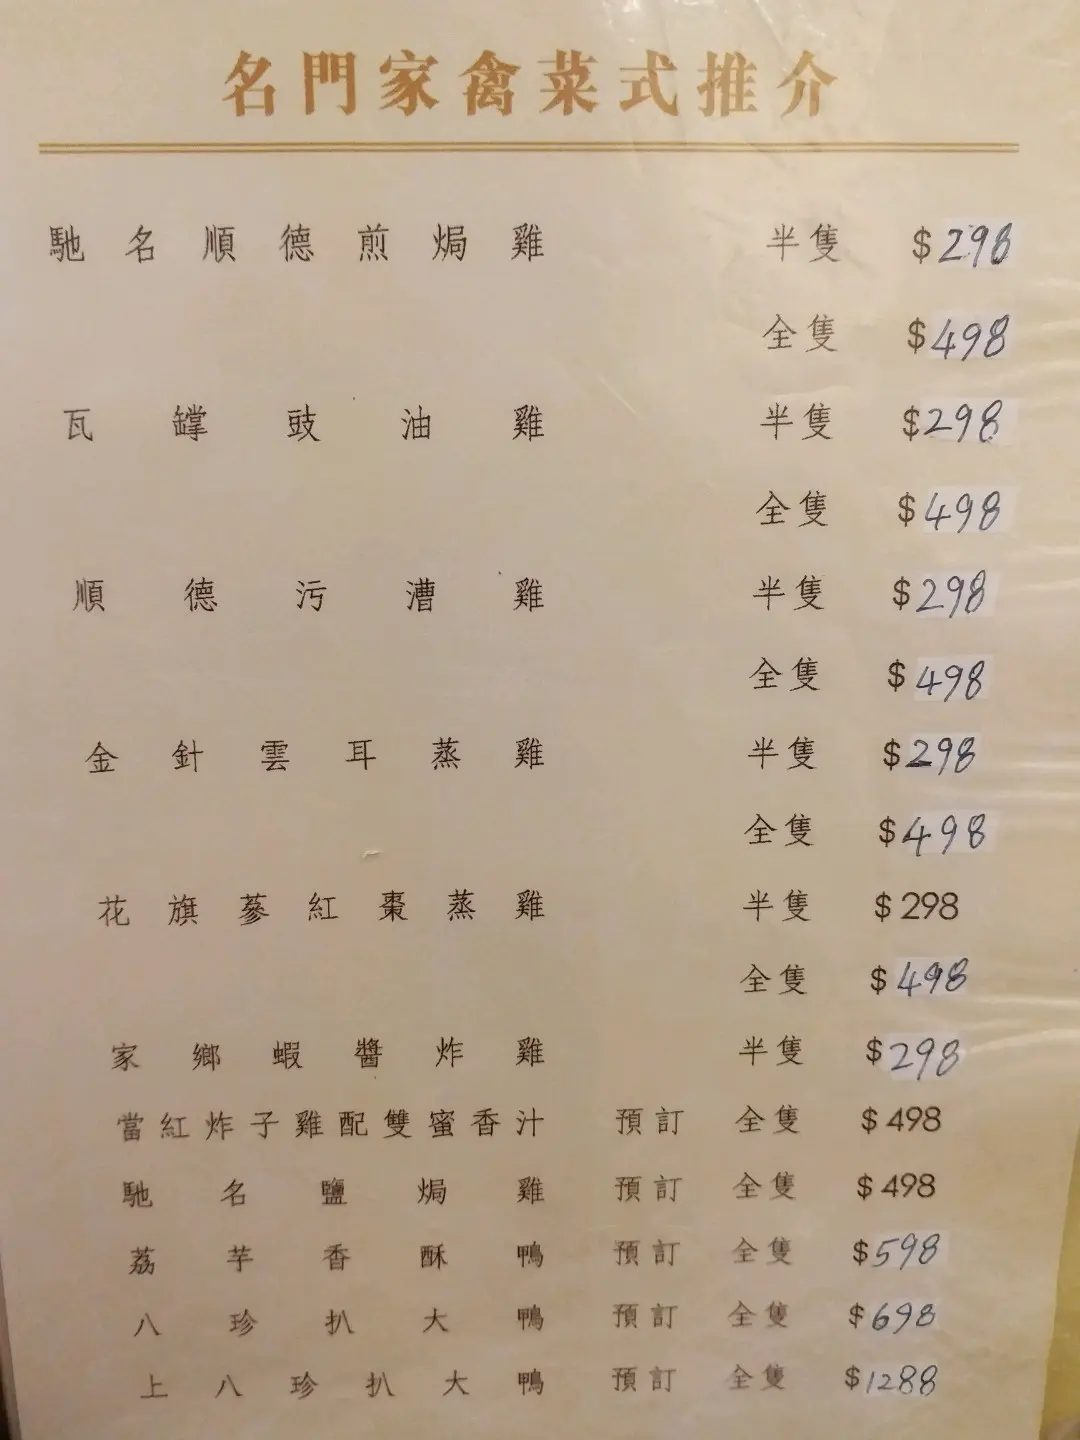 名門家禽菜式推介
馳名順德煎焗雞 半隻 $298
全隻 $498
瓦罉豉油雞 半隻 $298
全隻 $498
順德污漕雞 半隻 $298
全隻 $498
金針雲耳蒸雞 半隻 $298
全隻 $498
花旗蔘紅棗蒸雞 半隻 $298
全隻 $498
家鄉蝦醬炸雞 半隻 $298
當紅炸子雞配雙蜜香汁 預訂 全隻 $498
馳名鹽焗雞 預訂 全隻 $498
荔芋香酥鴨 預訂 全隻 $598
八珍扒大鴨 預訂 全隻 $698
上八珍扒大鴨 預訂 全隻 $1288